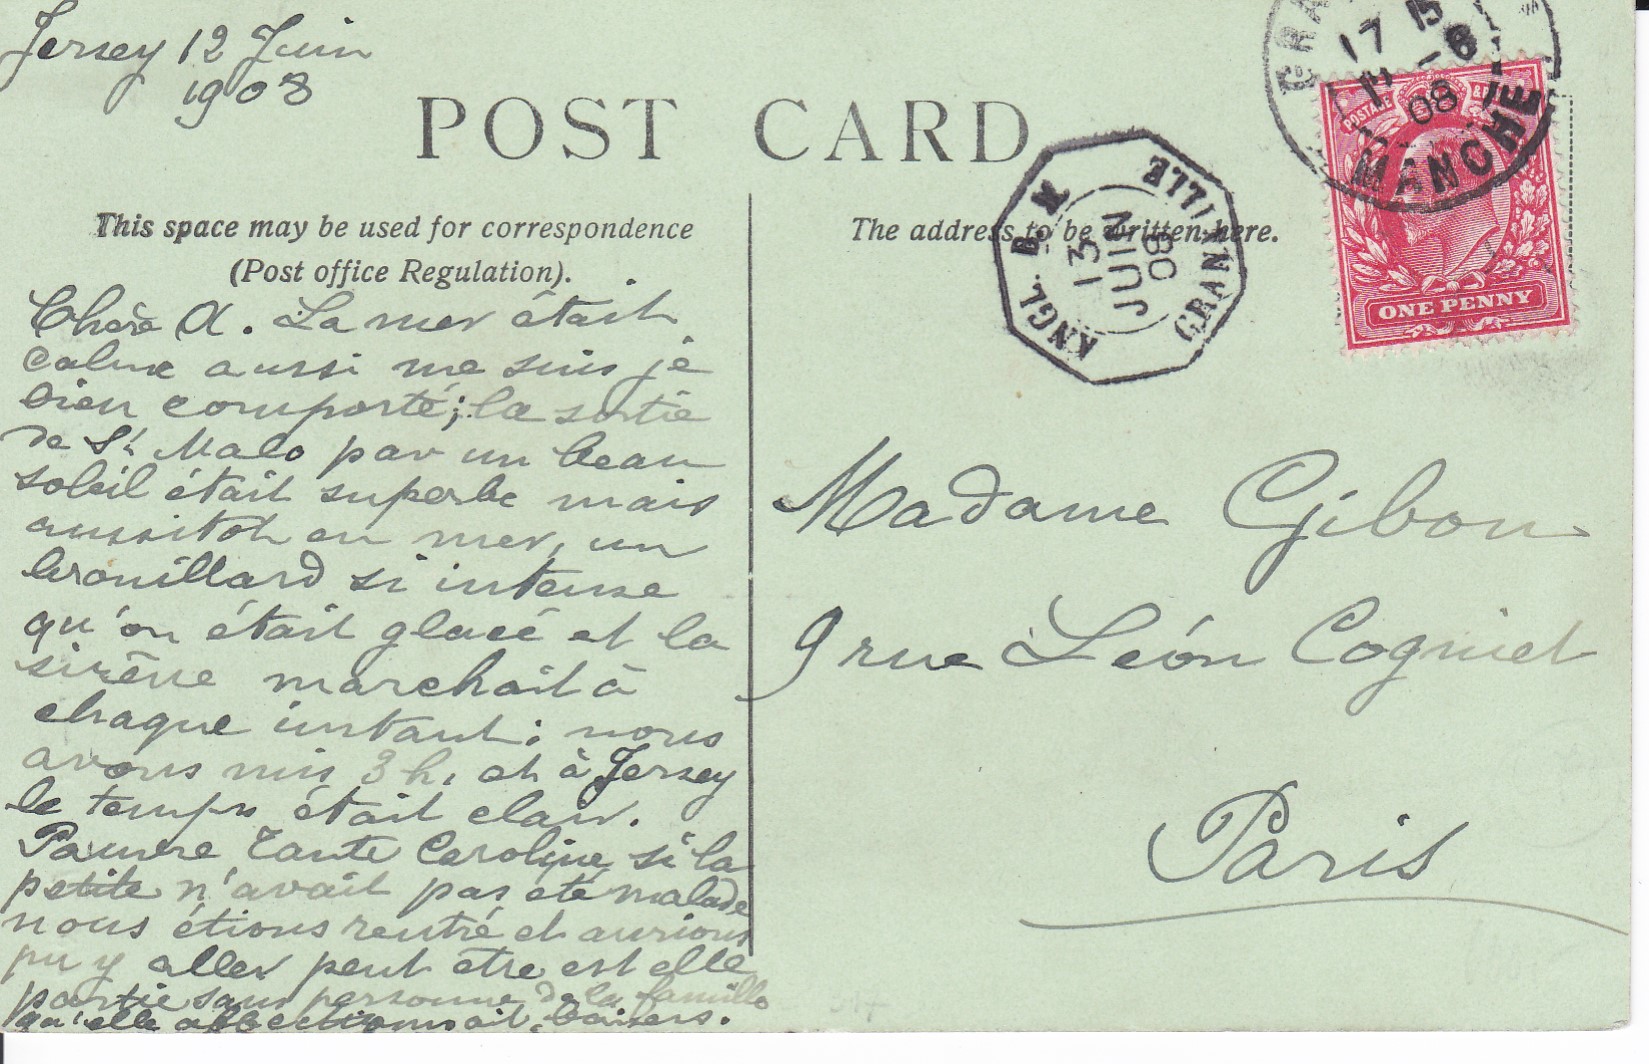 Jersey 12 Juin
1908
POST CARD
This space may be used for correspondence
(Post office Regulation).
The address to be written here.
Chère A. La mer était
calme aussi me suis je
bien comporté; la sortie
de St Malo par un beau
soleil était superbe mais
aussitot en mer, un
brouillard si intense
qu'on était glacé et la
sirène marchait à
chaque instant; nous
avons mis 3 h. et à Jersey
le temps était clair.
Pauvre Tante Caroline, si la
petite n'avait pas été malade
nous étions rentré et aurions
pu y aller peut être est elle
partie sans personne de la famille
qu'elle affectionnait, baisers.
Madame Gibon
9 rue Léon Cogniet
Paris
GRA
17 15
11 -6
08
MANCHE
POSTAGE &
ONE PENNY
ANGL. B. M
GRANVILLE
13
JUIN
08